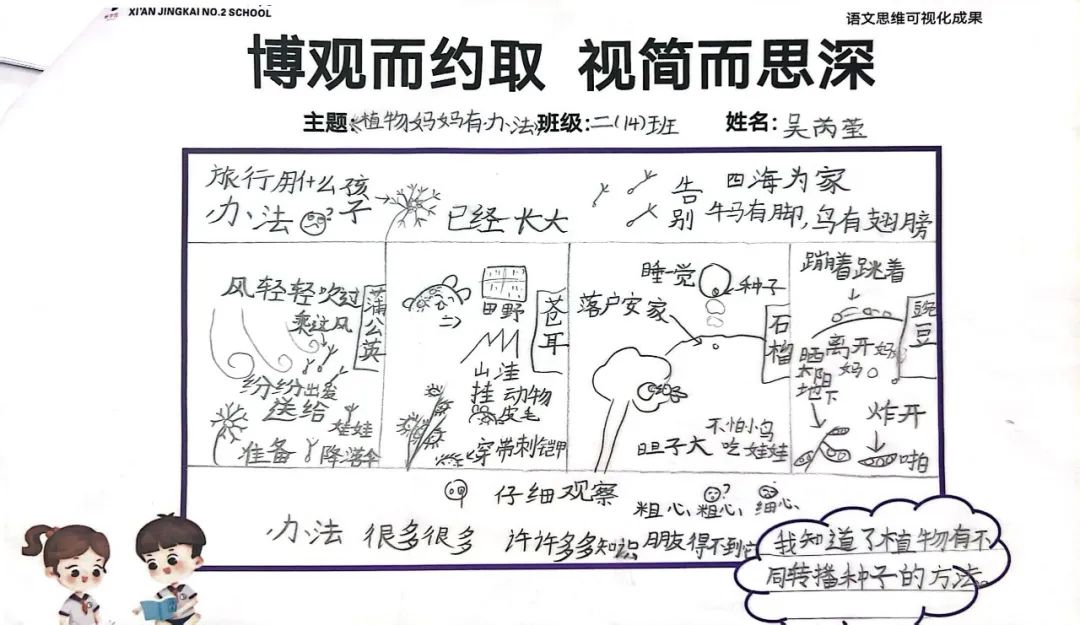 XI'AN JINGKAI NO.2 SCHOOL
语文思维可视化成果
博观而约取 视简而思深
主题:《植物妈妈有办法》班级:二(14)班 姓名:吴芮莹
旅行用什么孩子
办法
?
已经长大
告别
四海为家
牛马有脚,鸟有翅膀
风轻轻吹过
乘过风
蒲公英
纷纷出发
送给
娃娃
准备
降落伞
田野
苍耳
山洼
挂动物
皮毛
穿带刺铠甲
睡一觉
种子
落户安家
石榴
不怕小鸟
胆子大 吃娃娃
蹦着跳着
豌豆
离开妈妈
晒太阳
地下
炸开
啪
仔细观察
粗心、粗心、细心、
?
办法 很多很多 许许多多知识 朋友得不到它
我知道了植物有不
同转播种子的方法。